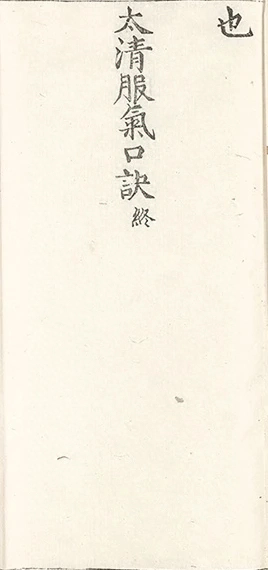 也
太清服氣口訣終